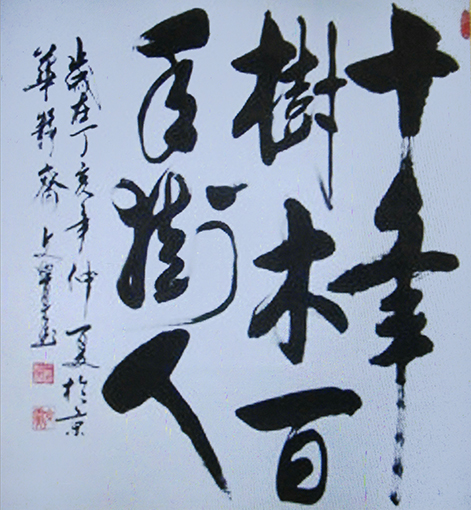 十年
樹木百
年樹人
歲在丁亥年仲夏於京
華
齋